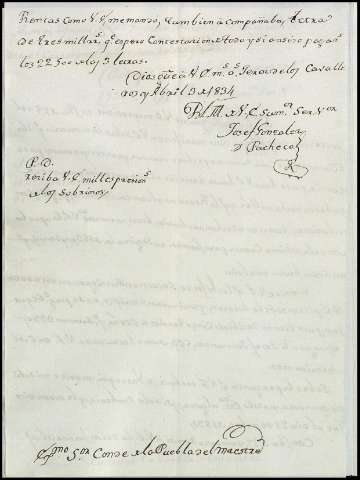 como V. E. me manda, tambien acompañaba, letra
de tres mill r.s q.e espero Contestacion de todo y si an sido pagas
los 22500 de los 3 letras.
Dios gue a V. E. m.s a.s Jerez de los Cavalle
ros y Abril 3 de 1834
B. L. M. de V. E. Su m.or Ser.v or
Josef Gonzalez
Pacheco
P. D.
reciba V. E. mill espresion.s
de los Sobrinos
Exmo S.or Conde de la Puebla del Maestre